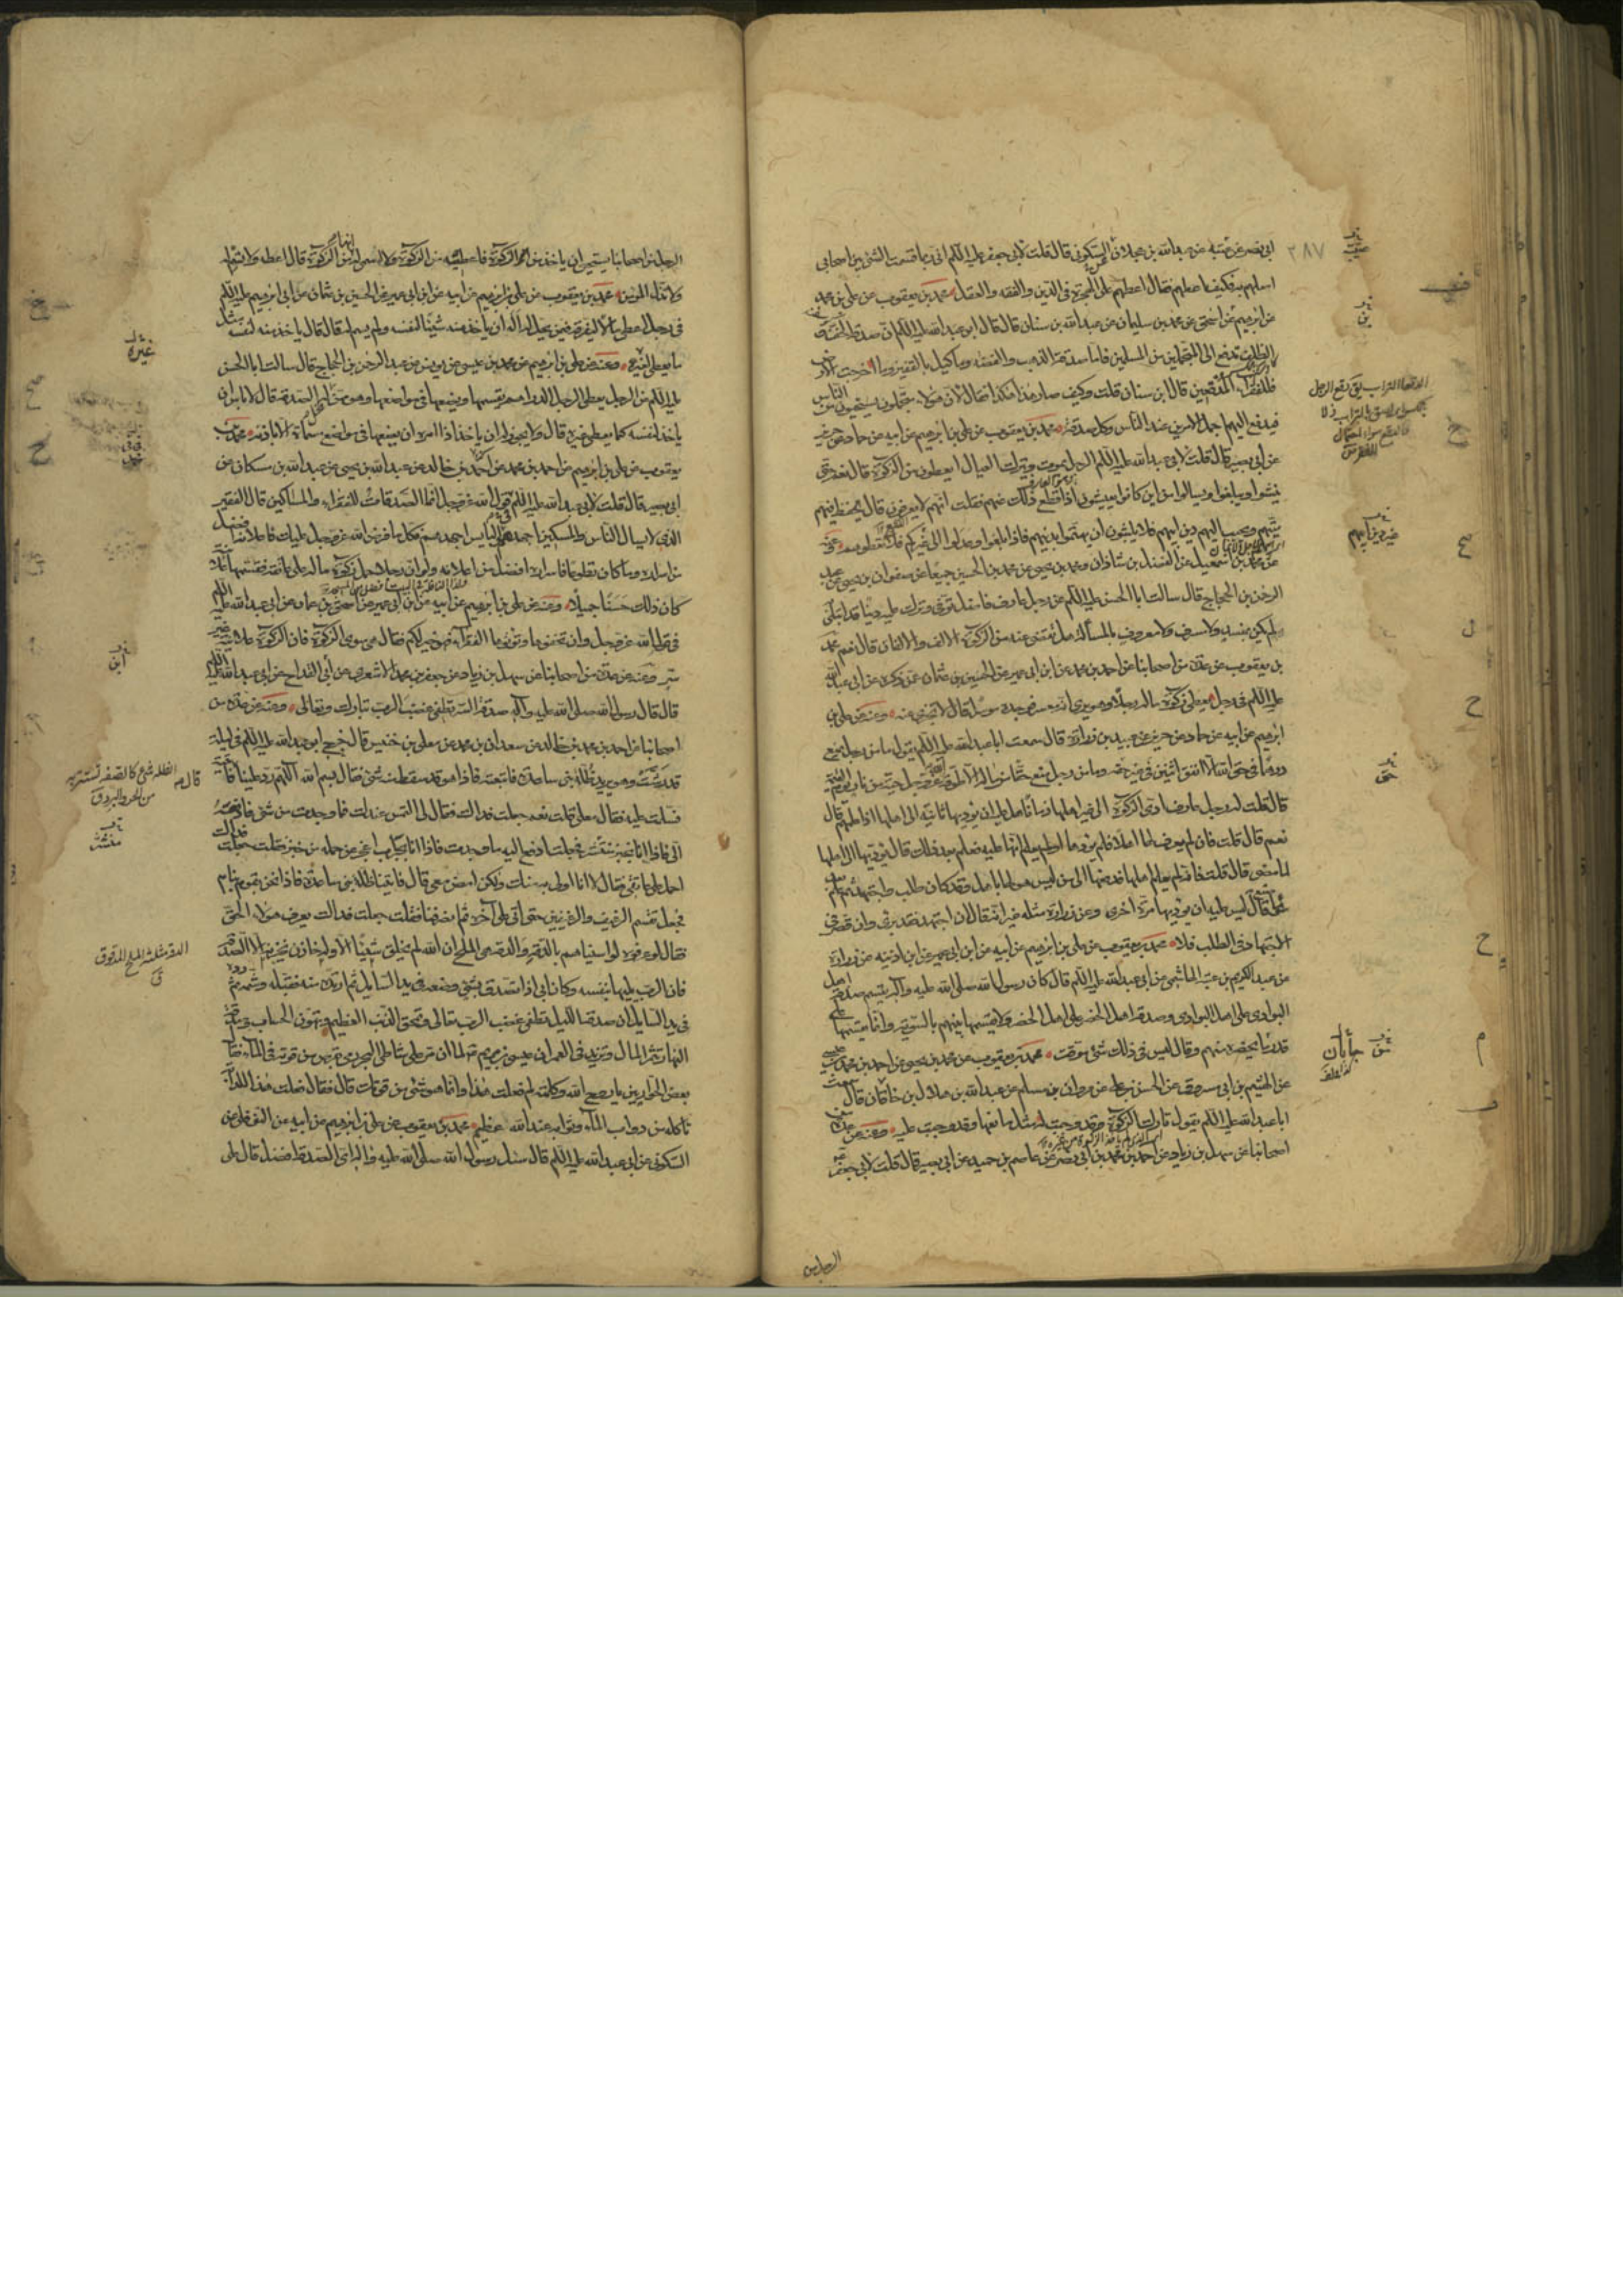 ابي نصر عن عتيبة عن عبد الله بن عجلان السكوني قال قلت لابي جعفر عليه السلم اني ربما قسمت الشئ بين اصحابي
اصلهم به فكيف اعطيهم فقال اعطهم على الهجرة في الدين والفقه والعقل محمد بن يعقوب عن علي بن محمد
عن ابرهيم بن اسحق عن محمد بن سليمان عن عبد الله بن سنان قال قال ابو عبد الله عليه السلم ان صدقة الخف
والظلف تدفع الى المتجملين من المسلمين فاما صدقة الذهب والفضة وما كيل بالقفيز وما اخرجت الارض
فللفقراء المدقعين قال ابن سنان قلت وكيف صار هذا هكذا فقال لان هؤلاء متجملون يستحيون من الناس
فيدفع اليهم اجمل الامرين عند الناس وكل صدقة محمد بن يعقوب عن علي بن ابرهيم عن ابيه عن حماد عن حريز
عن ابي بصير قال قلت لابي عبد الله عليه السلم الرجل يموت ويترك العيال ايعطون من الزكوة قال نعم حتى
ينشوا ويبلغوا ويسالوا من اين كانوا يعيشون اذا قطع ذلك عنهم فقلت انهم لا يعرفون قال يحفظ فيهم
ميتهم ويحبب اليهم دين ابيهم فلا يلبثون ان يهتموا بدين ابيهم فاذا بلغوا وعدلوا الى غيركم فلا تعطوهم
عن محمد بن اسمعيل عن الفضل بن شاذان ومحمد بن يحيى عن محمد بن الحسين جميعا عن صفوان بن يحيى عن عبد
الرحمن بن الحجاج قال سالت ابا الحسن عليه السلم عن رجل عارف فاضل توفي وترك عليه دينا قد ابتلي
به لم يكن بمفسد ولا مسرف ولا معروف بالمسألة هل يقضى عنه من الزكوة الالف والالفان قال نعم محمد
بن يعقوب عن عدة من اصحابنا عن احمد بن محمد عن ابن ابي عمير عن الحسين بن عثمان عمن ذكره عن ابي عبد الله
عليه السلم في رجل يعطي زكوة ماله رجلا وهو يرى انه معسر فوجده موسرا قال لا يجزي عنه وعنه عن علي بن
ابرهيم عن ابيه عن حماد عن حريز عن عبيد بن زرارة قال سمعت ابا عبد الله عليه السلم يقول ما من رجل يمنع
درهما في حق الا انفق اثنين في غير حقه وما من رجل يمنع حقا من ماله الا طوقه الله عز وجل حية من نار يوم القيمة
قال قلت له رجل عارف ادى الزكوة الى غير اهلها زمانا هل عليه ان يؤديها ثانية الى اهلها اذا علمهم قال
نعم قال قلت فان لم يعرف لها اهلا فلم يؤدها او لم يعلم انها عليه فعلم بعد ذلك قال يؤديها الى اهلها
لما مضى قال قلت فانه لم يعلم اهلها فدفعها الى من ليس هو لها باهل وقد كان طلب واجتهد ثم علم
قال ليس عليه ان يؤديها مرة اخرى وعن زرارة مثله غير انه قال ان اجتهد فقد برئ وان قصر في
الاجتهاد في الطلب فلا محمد بن يعقوب عن علي بن ابرهيم عن ابيه عن ابن ابي عمير عن ابن اذينة عن زرارة
عن عبد الكريم بن عتبة الهاشمي عن ابي عبد الله عليه السلم قال كان رسول الله صلى الله عليه وآله يقسم صدقة اهل
البوادي على اهل البوادي وصدقة اهل الحضر على اهل الحضر ولا يقسمها بينهم بالسوية وانما يقسمها على
قدر ما يحضره منهم وقال ليس في ذلك شئ موقت محمد بن يعقوب عن محمد بن يحيى عن احمد بن محمد بن عيسى
عن الهيثم بن ابي مسروق عن الحسن بن علي عن مروان بن مسلم عن عبد الله بن هلال بن خاقان قال سمعت
ابا عبد الله عليه السلم يقول تارك الزكوة وقد وجبت له مثل مانعها وقد وجبت عليه وعنه عن عدة من
اصحابنا عن سهل بن زياد عن احمد بن محمد بن ابي نصر عن عاصم بن حميد عن ابي بصير قال قلت لابي جعفر عليه
الرجل من
٣٨٧
الرجل من اصحابنا يستحيي ان ياخذ من الزكوة فاعطيه من الزكوة ولا اسمي له انها من الزكوة قال اعطه ولا تسم له
ولا تذل المؤمن محمد بن يعقوب عن علي بن ابرهيم عن ابيه عن ابن ابي عمير عن الحسين بن عثمان عن ابي ابرهيم عليه السلم
في رجل اعطي مالا يفرقه فيمن يحل له اله ان ياخذ منه شيئا لنفسه ولم يسم له قال قال ياخذ منه لنفسه مثل
ما يعطي غيره وعنه عن علي بن ابرهيم عن محمد بن عيسى عن يونس عن عبد الرحمن بن الحجاج قال سالت ابا الحسن
عليه السلم عن الرجل يعطي الرجل الدراهم يقسمها ويضعها في مواضعها وهو ممن تحل له الصدقة قال لا باس ان
ياخذ لنفسه كما يعطي غيره قال ولا يجوز له ان ياخذ اذا امره ان يضعها في مواضع مسماة الا باذنه محمد بن
يعقوب عن علي بن ابرهيم عن احمد بن محمد بن خالد عن عبد الله بن يحيى عن عبد الله بن مسكان عن
ابي بصير قال قلت لابي عبد الله عليه السلم قول الله عز وجل انما الصدقات للفقراء والمساكين قال الفقير
الذي لا يسال الناس والمسكين اجهد منه والبايس اجهدهم فكل ما فرض الله عز وجل عليك فاعلانه افضل
من اسراره وما كان تطوعا فاسراره افضل من اعلانه ولو ان رجلا حمل زكوة ماله على عاتقه فقسمها علانية
كان ذلك حسنا جميلا وعنه عن علي بن ابرهيم عن ابيه عن ابن ابي عمير عن اسحق بن عمار عن ابي عبد الله عليه السلم
في قول الله عز وجل وان تخفوها وتؤتوها الفقراء فهو خير لكم فقال هي سوى الزكوة فان الزكوة علانية غير
سر وعنه عن عدة من اصحابنا عن سهل بن زياد عن جعفر بن محمد الاشعري عن ابن القداح عن ابي عبد الله عليه السلم
قال قال رسول الله صلى الله عليه وآله صدقة السر تطفئ غضب الرب تبارك وتعالى وعنه عن عدة من
اصحابنا عن احمد بن محمد بن خالد عن سعدان بن محمد عن معلى بن خنيس قال خرج ابو عبد الله عليه السلم في ليلة
قد رشت وهو يريد ظلة بني ساعدة فاتبعته فاذا هو قد سقط منه شئ فقال بسم الله اللهم رد علينا قال فاتيته
فسلمت عليه فقال معلى قلت نعم جعلت فداك فقال لي التمس بيدك فما وجدت من شئ فادفعه
الي فاذا انا بخبز منتشر فجعلت ادفع اليه ما وجدت فاذا انا بجراب اعجز عن حمله من خبز فقلت جعلت فداك
احمله على عاتقي فقال لا انا اولى به منك ولكن امض معي قال فاتينا ظلة بني ساعدة فاذا نحن بقوم نيام
فجعل يقسم الرغيف والرغيفين حتى اتى على آخرهم ثم انصرفنا فقلت جعلت فداك يعرف هؤلاء الحق
فقال لو عرفوه لواسيناهم بالدقة والدقة هي الملح ان الله لم يخلق شيئا الا وله خازن يخزنه الا الصدقة
فان الرب يليها بنفسه وكان ابي اذا تصدق بشئ وضعه في يد السايل ثم ارتده منه فقبله وشمه ثم رده
في يد السايل ان صدقة الليل تطفئ غضب الرب تعالى وتمحق الذنب العظيم وتهون الحساب وصدقة
النهار تثمر المال وتزيد في العمر ان عيسى بن مريم عليهما السلم لما ان مر على شاطئ البحر رمى بقرص من قوته في الماء فقال
بعض الحواريين يا روح الله وكلمته لم فعلت هذا وانما هو شئ من قوتك قال فقال فعلت هذا لدابة
تاكله من دواب الماء وثوابه عند الله عظيم محمد بن يعقوب عن علي بن ابرهيم عن ابيه عن النوفلي عن
السكوني عن ابي عبد الله عليه السلم قال سئل رسول الله صلى الله عليه وآله اي الصدقة افضل قال على